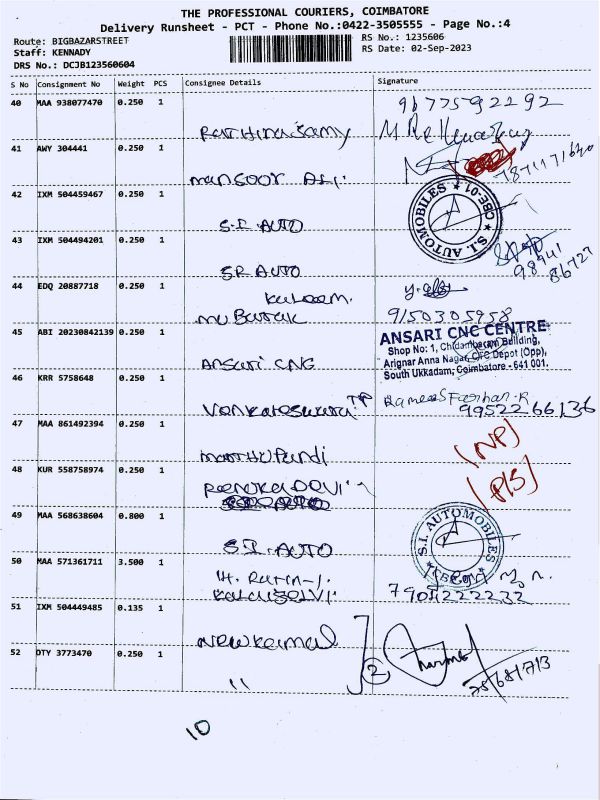 THE PROFESSIONAL COURIERS, COIMBATORE
Delivery Runsheet - PCT - Phone No.:0422-3505555 - Page No.:4
Route: BIGBAZARSTREET
Staff: KENNADY
DRS No.: DCJB123560604
RS No.: 1235606
RS Date: 02-Sep-2023
S No Consignment No Weight PCS Consignee Details Signature
40 MAA 938077470 0.250 1
9677592292
41 AWY 304441 0.250 1
Mansoor Ali.
42 IXM 504459467 0.250 1
S.I. AUTO
S.I. AUTOMOBILES ★ CBE-01 ★
43 IXM 504494201 0.250 1
SR AUTO
98941
86727
44 EDQ 20887718 0.250 1
Kaleem.
Mubarak
9150305958
45 ABI 20230842139 0.250 1
Ansari CNG
ANSARI CNC CENTRE
Shop No: 1, Chidambaram Building,
Arignar Anna Nagar, CFC Depot (Opp),
South Ukkadam, Coimbatore - 641 001.
46 KRR 5758648 0.250 1
TP
9952266136
47 MAA 861492394 0.250 1
Muthupandi
(NP)
48 KUR 558758974 0.250 1
Renuka Devi
(P/S)
49 MAA 568638604 0.800 1
S.I. AUTO
S.I. AUTOMOBILES
50 MAA 571361711 3.500 1
Kalaiselvi
7904222232
51 IXM 504449485 0.135 1
New Kamal
52 DTY 3773470 0.250 1
"
2
10